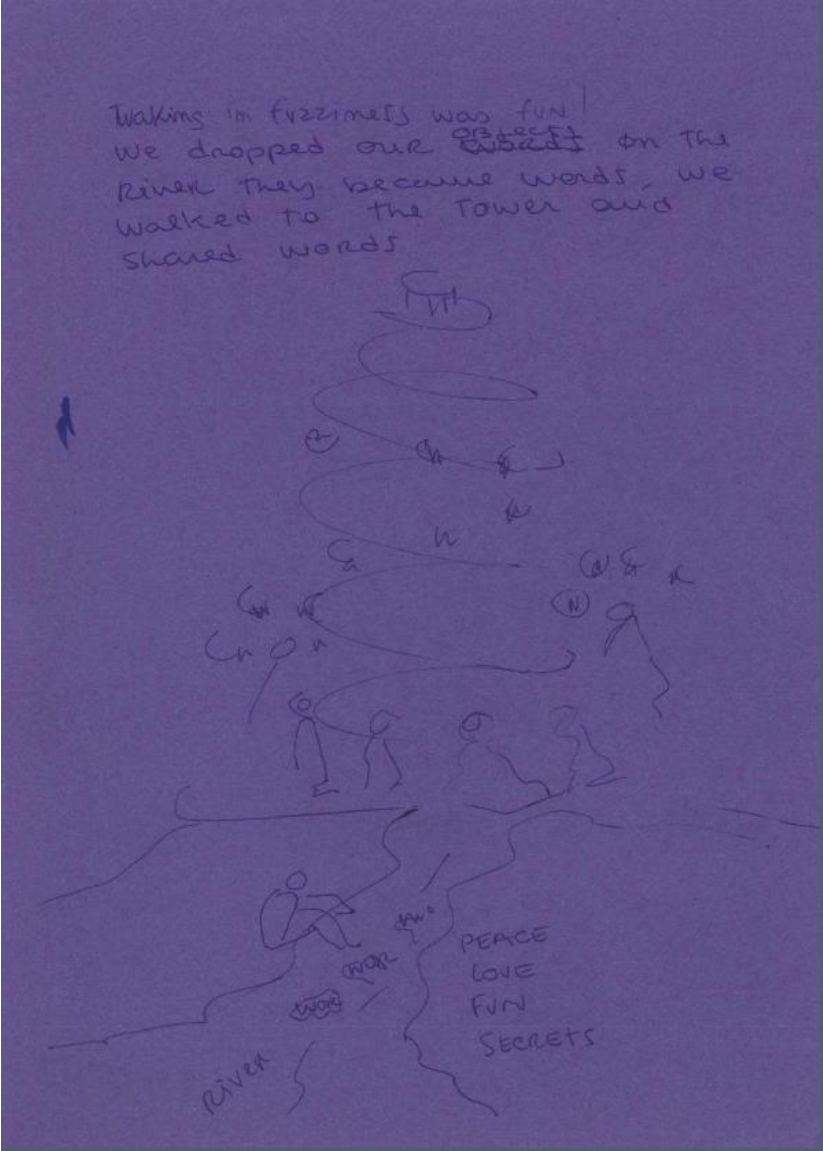 Waking in fuzziness was fun!
we dropped our objects on the
River They became words, we
walked to the Tower and
shared words
PEACE
LOVE
FUN
SECRETS
RIVER